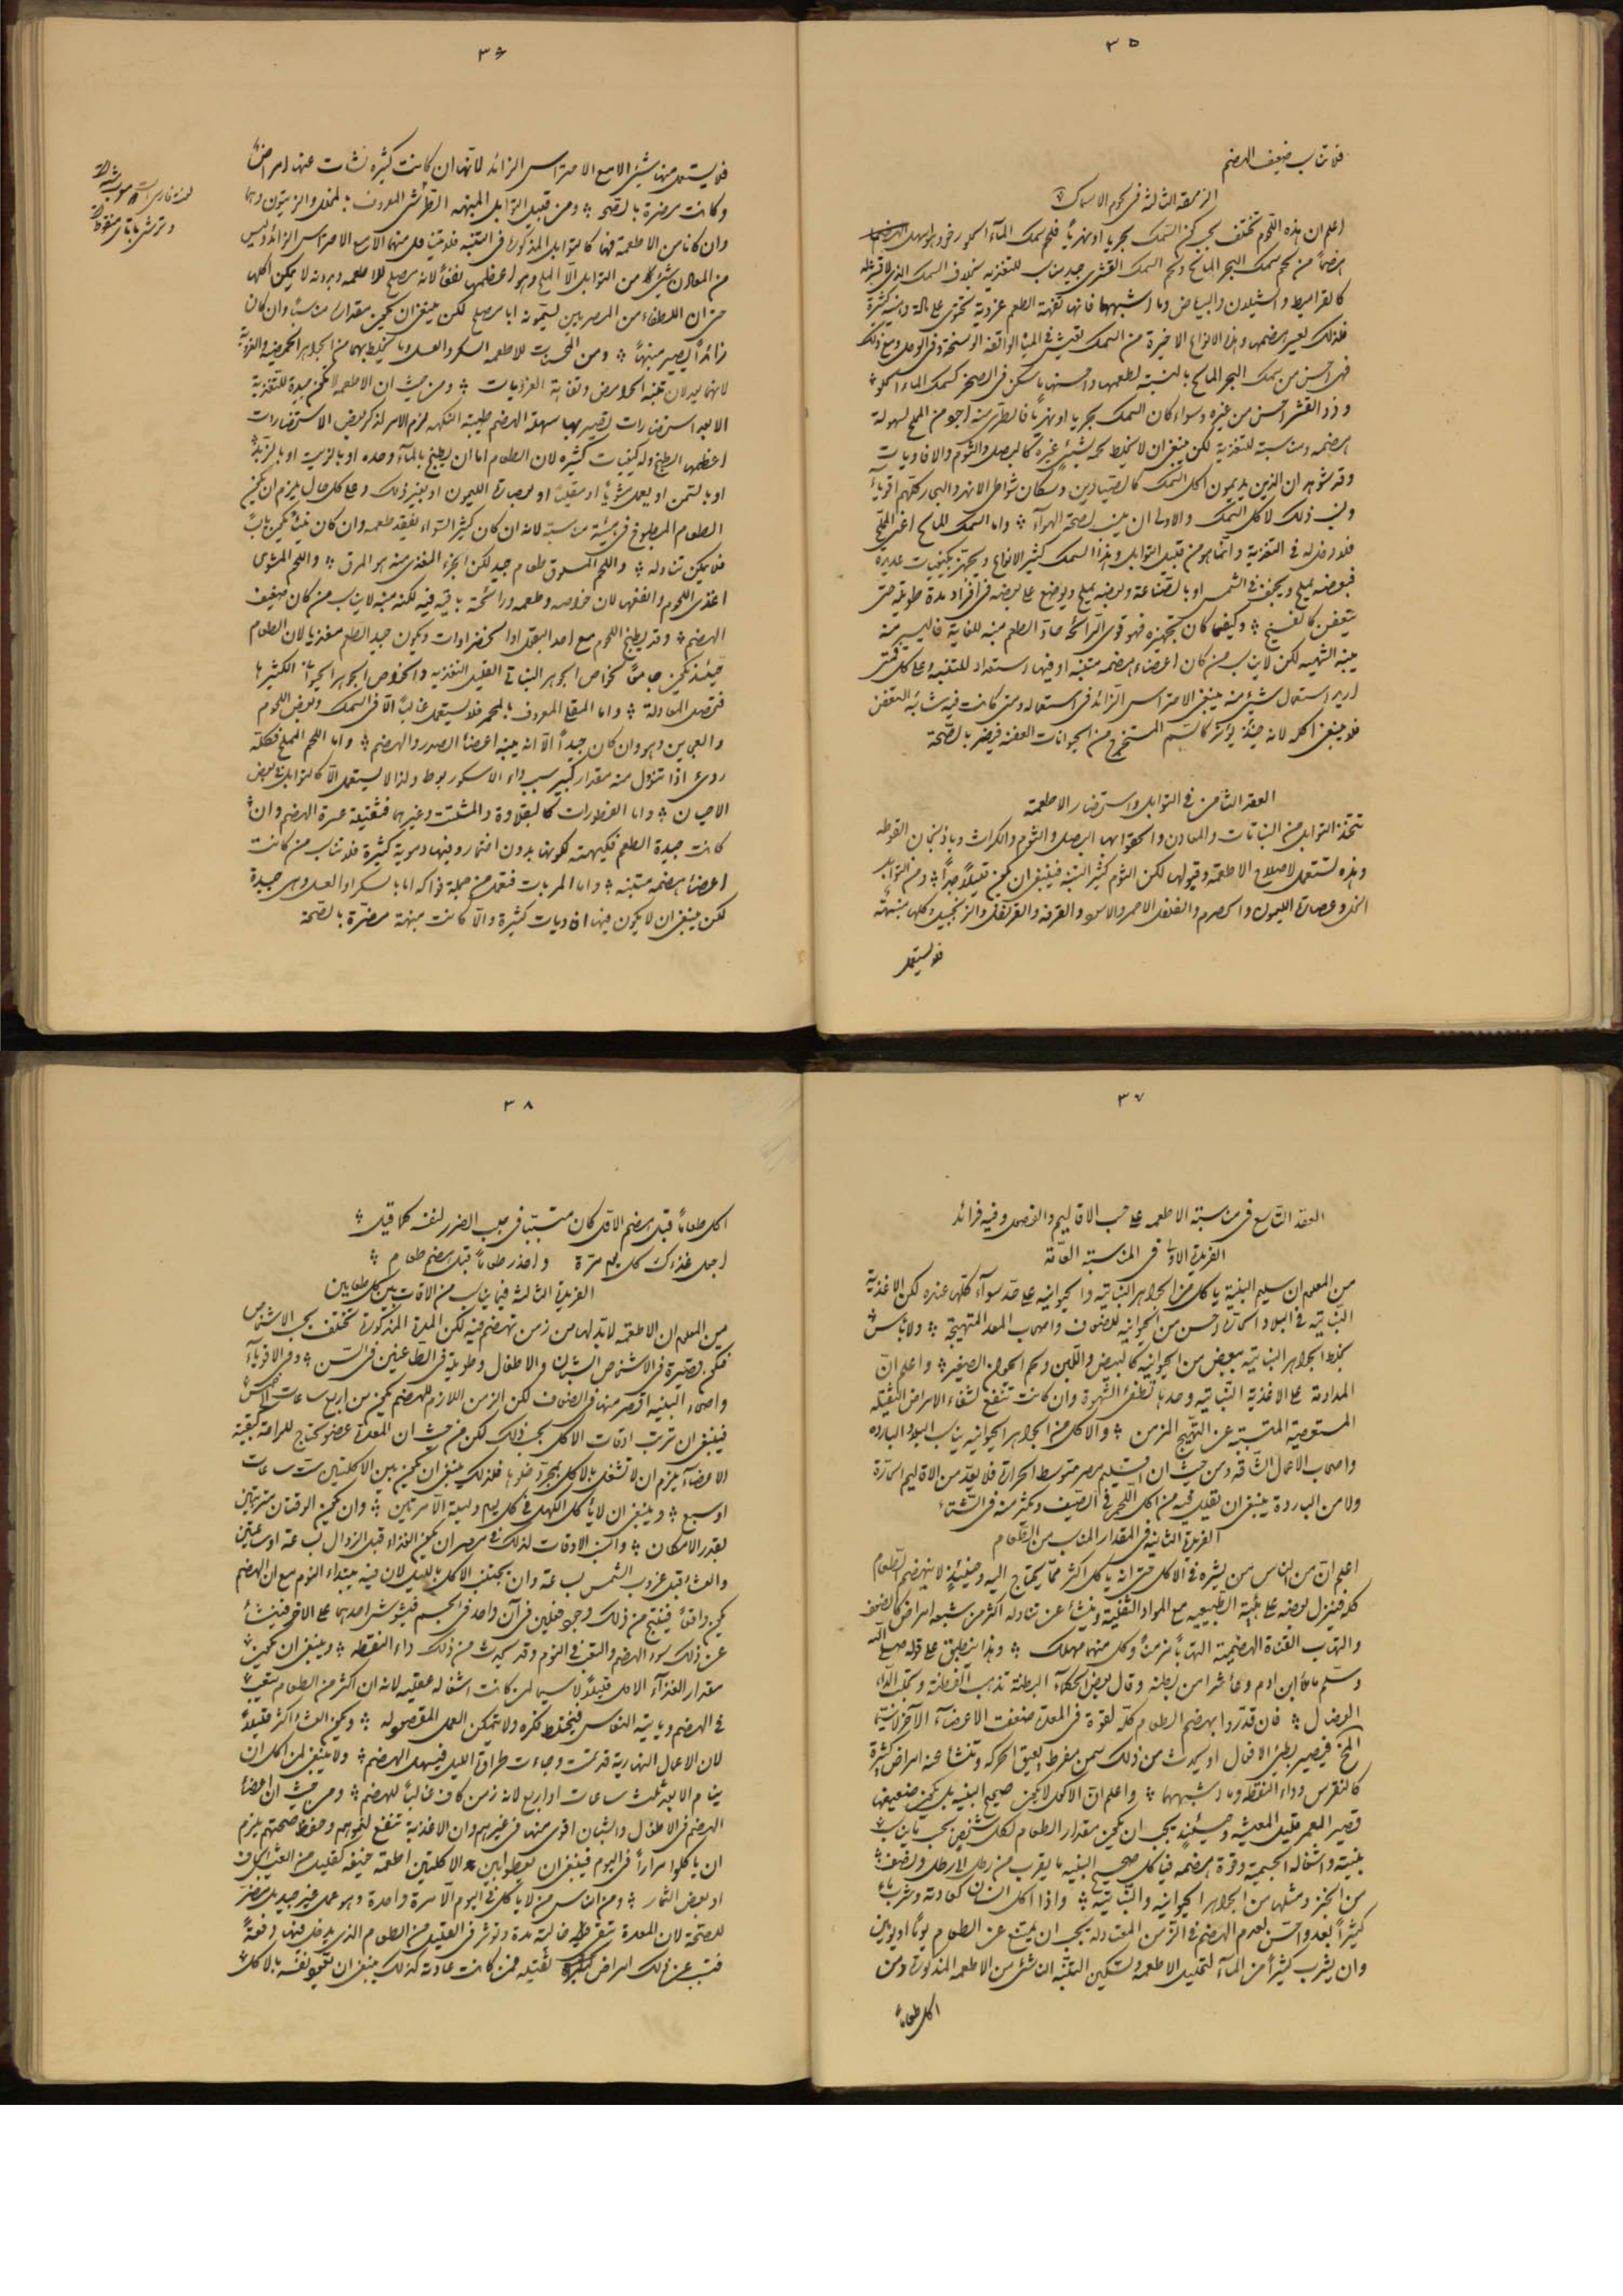 ٣٥
فلا تناسب ضعيف الهضم
الزمقة الثالثة فى لحوم الاسماك
اعلم ان هذه اللحوم تختلف بحسب كون السمك بحريا او نهريا فلحم سمك المآء الحلو رخو وهو اسهل
هضماً من لحم سمك البحر المالح ولحم السمك القشرى جيد يناسب للتغذيه بخلاف السمك الذى لا قشر له
كالقراميط والشيلان والبياض وما اشبهها فانها تفهة الطعم غروية تحتوى على مالة ودسمة كثيرة
فلذلك يعسر هضمها وهذه الانواع الاخيرة من السمك تعيش فى المياه الواقفة الوسخة وفى الوحل ومع ذلك
فهى احسن من سمك البحر المالح بالنسبة لطعمها واحسنها ما يسكن فى الصخر كسمك الماء الحلو
وذو القشر احسن من غيره وسواء كان السمك بحريا او نهريا فالطرى منه اجود من المملح لسهولة
هضمه ومناسبة للتغذية لكن ينبغى ان لا يخلط لحمه بشيئ غيره كالبصل والثوم والافاويات
وقد شوهد ان الذين يديمون اكل السمك كالصيادين وسكان شواطئ الانهر والبحار كلهم اقوياء
وليس ذلك لاكل السمك والاولى ان ينسب لصحة الهوآء واما السمك المالح اعنى المملح
فلا دخل له فى التغذية وانما هو من قبيل التوابل وهذا السمك كثير الانواع ويجهز بكيفيات عديدة
فبعضه يملح ويجفف فى الشمس او بالصناعة وبعضه يملح ويوضع على بعضه فى افراد مدة طويلة حتى
يتعفن كالفسيخ وكيفما كان تجهيزه فهو قوى الرائحة حاد الطعم منبه للغاية فاليسير منه
ينبه الشهية لكن لا يناسب من كان اعضاء هضمه متنبه او فيها استعداد للتنبه وعلى كل فمتى
اريد استعمال شيئ منه ينبغى الاحتراس الزائد فى استعماله ومتى كانت فيه شائبة التعفن
فلا ينبغى اكله لانه حينئذ يؤثر كالسم المستخرج من الحيوانات العفنة فيضر بالصحة
العقد الثامن فى التوابل واستحضار الاطعمة
تتخذ التوابل من النباتات والمعادن واكثر انواعها البصل والثوم والكراث وباذنجان القوطه
وهذه تستعمل لاصلاح الاطعمة وقبولها لكن الثوم كثير التنبيه فينبغى ان يكون قليلاً جداً ومن التوابل
الخل وعصارة الليمون والحصرم والفلفل الاحمر والاسود والقرفة والقرنفل والزنجبيل وكلها منبهة
فلا يستعمل
٣٦
فلا يستعمل منها شيئ الا مع الاحتراس الزائد لانها ان كانت كثيره نشأت عنها امراض
وكانت مضرة بالصحة ومن قبيل التوابل المنبهه الطرشى المعروف بالمخلل والزيتون وهما
وان كانا من الاطعمة فهما كالتوابل المذكورة فى التنبه فلا يتناول منهما الا مع الاحتراس الزائد وليس
من المعادن شيئ من التوابل الا الملح وهو اعظمها نفعاً لانه مصلح للاطعمه وبدونه لا يمكن اكلها
حتى ان اللطفاء من المصريين يسمونه ابا مصلح لكن ينبغى ان يكون مقداره مناسباً وان كان
زائداً يصير منبهاً ومن المحسنات للاطعمه السكر والعسل وما يختلط بهما من الجواهر الحمضيه والغروية
لانها يعدلان تنبه الحوامض وتفاهة الغرويات ومن حيث ان الاطعمة لا تكون جيدة للتغذية
الا بعد استحضارات لتصير بها سهلة الهضم طيبة النكهه لزم الامر لذكر بعض الاستحضارات
اعظمها الطبخ وله كيفيات كثيره لان الطعام اما ان يطبخ بالمآء وحده او بالزيت او بالزبد
او بالسمن او يعمل مشوياً او مقلياً او بعصارة الليمون او بغير ذلك وعلى كل حال يلزم ان يكون
الطعام المطبوخ فى هيئة مناسبة لانه ان كان كثير التواء يفقد طعمه وان كان نيئاً يكون يابساً
فلا يمكن تناوله واللحم المسلوق طعام جيد لكن الجزء المغذى منه هو المرق واللحم المشوى
اغذى اللحوم وانفعها لان خواصه وطعمه ورائحته باقيه فيه لكنه منبه لا يناسب من كان ضعيف
الهضم وقد يطبخ اللحوم مع احد البقول او الخضراوات ويكون جيد الطعم مغذيا لان الطعام
حينئذ يكون جامعاً لخواص الجوهر النباتى القليل التغذيه والخواص الجوهر الحيوانى الكثيرها
فتحصل المعادلة واما المقلى المعروف بالمحمر فلا يستعمل غالباً الا فى السمك وبعض اللحوم
والعجين وهو وان كان جيداً الا انه ينبه اعضاء الصدر والهضم واما اللحم المملح فكله
ردى اذا تنوول منه مقدار كبير سبب داء الاسكوربوط ولذا لا يستعمل الا كالتوابل فى بعض
الاحيان واما الفطورات كالبقلاوة والمشلتت وغيرهما فثقيلة عسرة الهضم وان
كانت جيدة الطعم فكيهته لكونها بدون اختمار وفيها دسوية كثيرة فلا تناسب من كانت
اعضاء هضمه متنبه واما المربات فتعمل من جملة فواكه اما بالسكر او العسل وهى جيدة
لكن ينبغى ان لا يكون فيها افاويات كثيرة والا كانت منبهة مضرة بالصحة
٣٧
العقد التاسع فى مناسبة الاطعمه على حسب الاقاليم والفصول وفيه فرائد
الفريدة الاولى فى المناسبة العامة
من المعلوم ان سليم البنية ياكل من الجواهر النباتيه والحيوانيه على حد سوآء كلها عنده لكن الاغذية
النباتيه فى البلاد الحارة احسن من الحيوانيه للضعاف واصحاب المعد المتهيجة ولا بأس
بخلط الجواهر النباتيه ببعض من الحيوانيه كالبيض واللبن ولحم الحيوان الصغير واعلم ان
المداومة على الاغذية النباتيه وحدها تطفئ الشهوة وان كانت تنفع لشفاء الامراض الثقيله
المستعصية المتسببة عن التهيج المزمن والاكل من الجواهر الحيوانيه يناسب البلاد البارده
واصحاب الاعمال الشاقه ومن حيث ان اقليم مصر متوسط الحرارة فلا يعد من الاقاليم الحارة
ولا من الباردة ينبغى ان يقلل فيه من اكل اللحم فى الصيف ويكثر منه فى الشتاء
الفريدة الثانيه فى المقدار المناسب من الطعام
اعلم ان من الناس من يشره فى الاكل حتى انه ياكل اكثر مما يحتاج اليه وحينئذ لا ينهضم الطعام
كله فينزل بعضه على هيئة الطبيعيه مع المواد الثفلية وينشأ عن تناوله اكثر من شبعه امراض كالضعف
والتهاب القناة الهضمية التهاباً مزمناً وكل منهما مهلك وهذا ينطبق على قوله صلى الله
وسلم ما ملأ ابن ادم وعاء شراً من بطنه وقال بعض الحكمآء البطنة تذهب الفطنة وتجلب الداء
العضال فان قدر واهضم الطعام كله لقوة فى المعدة ضعفت الاعضآء الآخر لا سيما
المخ فيصير بطئ الافعال او يحدث من ذلك سمن مفرط يعيق الحركه وتنشأ عنه امراض كثيرة
كالنقرس وداء النقطه وما اشبهها واعلم ان الاكول لا يكون صحيح البنية بل يكون ضعيفها
قصير العمر قليل المعيشه وحينئذ يجب ان يكون مقدار الطعام لكل شخص بحسب ما يناسب
بنيته واشغاله الجسمية وقوة هضمه فياكل صحيح البنيه ما يقرب من رطل الى رطل ونصف
من الخبز ومثلها من الجواهر الحيوانيه والنباتية واذا اكل انسان كعادته وشرب ماء
كثيراً بعد واحسن بعدم الهضم فى الزمن المعتاد له يجب ان يمتنع عن الطعام يوماً او يومين
وان يشرب كثيراً من المآء لتحليل الاطعمه وتسكين التنبه الناشئ من الاطعمه المذكورة ومن
اكل طعاماً
٣٨
اكل طعاماً قبل هضم الاول كان متسبباً فى جلب الضرر لنفسه كما قيل
اجعل غذاءك كل يوم مرة واحذر طعاماً قبل هضم طعام
الفريدة الثالثة فيما يناسب من الاوقات بين كل طعامين
من المعلوم ان الاطعمه لابد لها من زمن تنهضم فيه لكن المدة المذكورة تختلف بحسب الاشخاص
فتكون قصيرة فى الاشخاص الشبان والاطفال وطويلة فى الطاعنين فى السن وفى الاقويآء
واصحاء البنيه اقصر منها فى الضعاف لكن الزمن اللازم للهضم يكون من اربع ساعات الى خمس
فينبغى ان ترتب اوقات الاكل بحسب ذلك لكن من حيث ان المعدة عضو يحتاج للراحة كبقية
الاعضآء يلزم ان لا تشغل بالاكل بمجرد خلوها فلذلك ينبغى ان يكون بين الاكلتين ست ساعات
او سبع وينبغى ان لا يأكل الكهل فى كل يوم وليلة الا مرتين وان يكون الوقتان متقاربين
بقدر الامكان وانسب الاوقات لذلك فى مصر ان يكون الغذاء قبل الزوال بساعة او ساعتين
والعشاء قبل غروب الشمس بساعة وان يجتنب الاكل بالليل لان فيه يبتداء النوم مع ان الهضم
يكون واقفاً فينتج من ذلك وجود فعلين فى آن واحد فى الجسم فيشوش احدهما على الاخر فينشأ
عن ذلك سوء الهضم والتعب فى النوم وقد يحدث من ذلك داء النقطه وينبغى ان يكون
مقدار الغذآء الاول قليلاً لا سيما لمن كانت اشغاله عقليه لانه ان اكثر من الطعام يتعب
فى الهضم ويأتيه النعاس فيختلط فكره ولا يتمكن العمل المقصود له ويكون العشاء اكثر قليلاً
لان الاعمال النهارية قد تمت وجاءت طراوة الليل فيسهل الهضم ولا ينبغى لمن اكل ان
ينام الا بعد ثلث ساعات او اربع لانه زمن كاف غالباً للهضم ومن حيث ان اعضاء
الهضم فى الاطفال والشبان اقوى منها فى غيرهم وان الاغذية تنفع لنموهم وحفظ صحتهم يلزم
ان ياكلوا مراراً فى اليوم فينبغى ان يعطوا بين الاكلتين اطعمة خفيفه كقليل من العيش الحاف
او بعض الثمار ومن الناس من لا ياكل فى اليوم الا مرة واحدة وهو عمل غير جيد بل مضر
للصحة لان المعدة تبقى خالية مدة وتؤثر فى القليل من الطعام الذى يدخل فيها دفعة
فتسبب عن ذلك امراض ثقيله فمن كانت عادته كذلك ينبغى ان يعود نفسه بالاكل